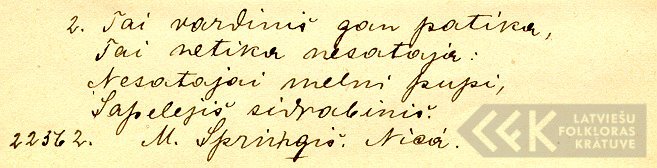 2. Tai vardiniš gan patika,
Tai netika nesataja:
Nesatajai melni pupi,
Sapelejiš sidrabiniš.
22562. M. Springiš. Nicá.
LATVIEŠU
FOLKLORAS
KRĀTUVE